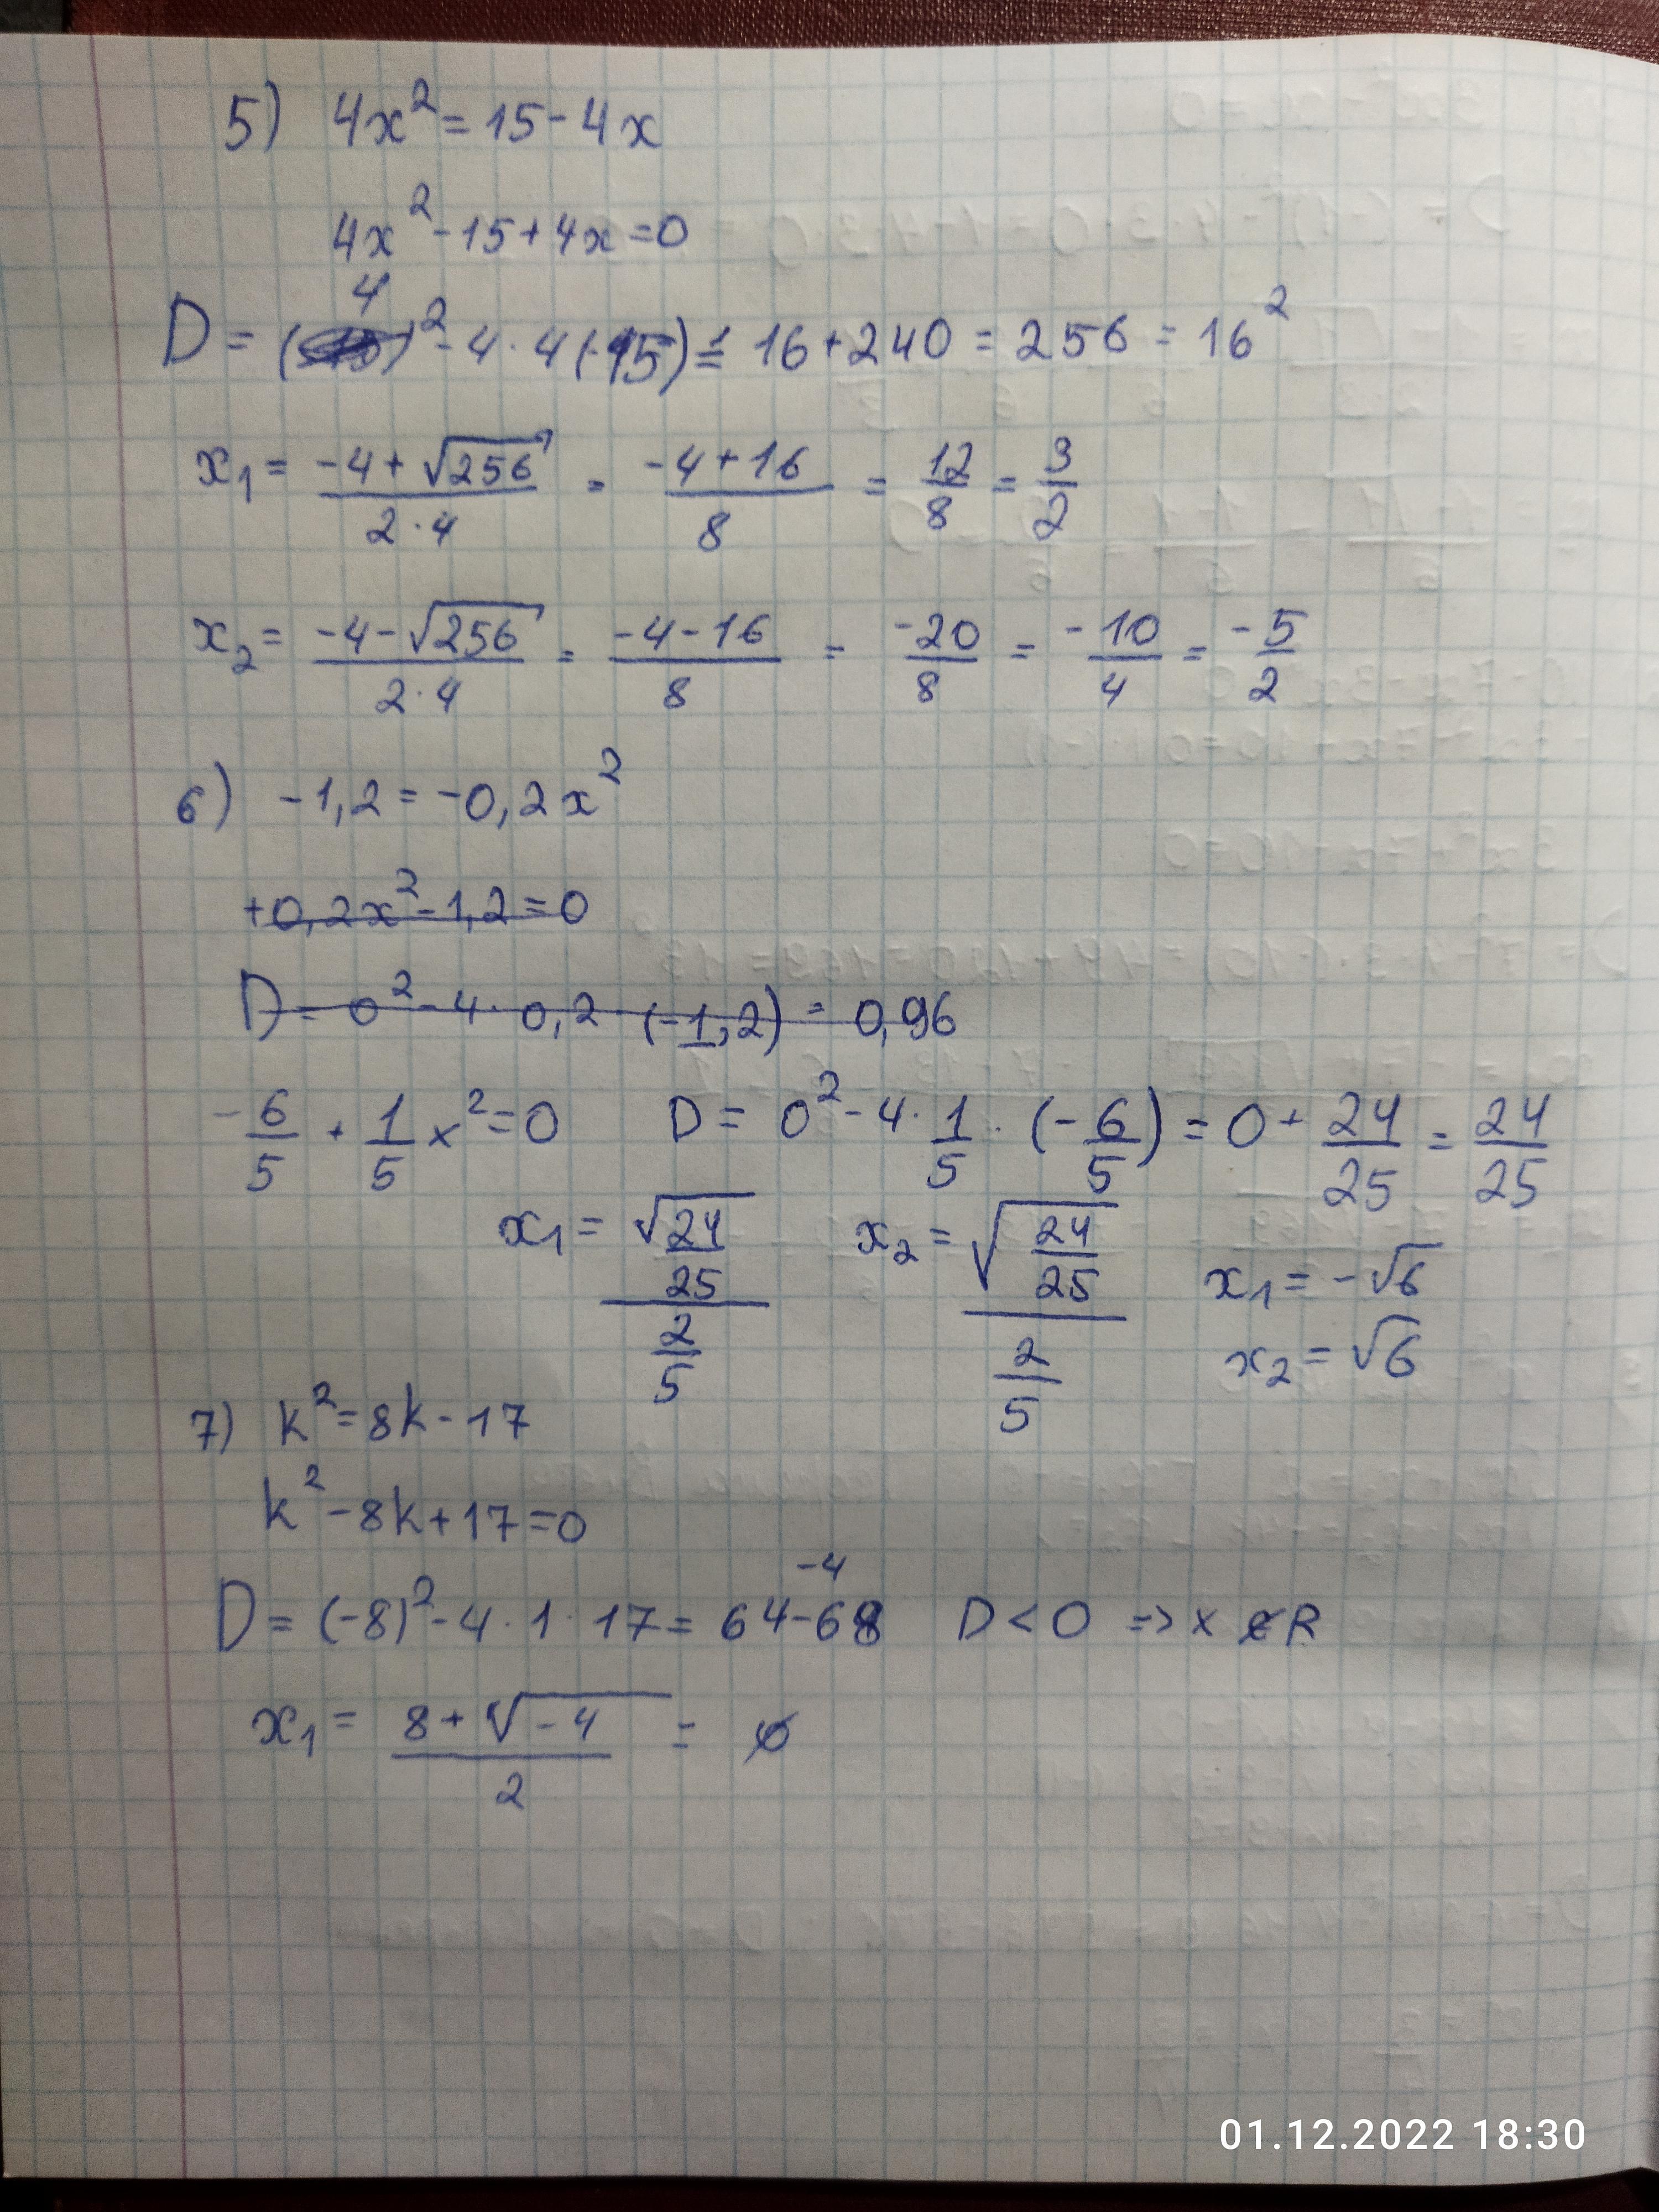 5) 4x² = 15 - 4x
4x² - 15 + 4x = 0
D = (4)² - 4 · 4 (-15) = 16 + 240 = 256 = 16²
x₁ = (-4 + √256)/(2 · 4) = (-4 + 16)/8 = 12/8 = 3/2
x₂ = (-4 - √256)/(2 · 4) = (-4 - 16)/8 = -20/8 = -10/4 = -5/2
6) -1,2 = -0,2x²
+0,2x² - 1,2 = 0
D = 0² - 4 · 0,2 · (-1,2) = 0,96
-6/5 + 1/5 x² = 0 D = 0² - 4 · 1/5 · (-6/5) = 0 + 24/25 = 24/25
x₁ = √(24/25)/(2/5) x₂ = √(24/25)/(2/5) x₁ = -√6
x₂ = √6
7) k² = 8k - 17
k² - 8k + 17 = 0
D = (-8)² - 4 · 1 · 17 = 64 - 68 -4 D < 0 => x ∉ R
x₁ = (8 + √-4)/2 = ∅
01.12.2022 18:30